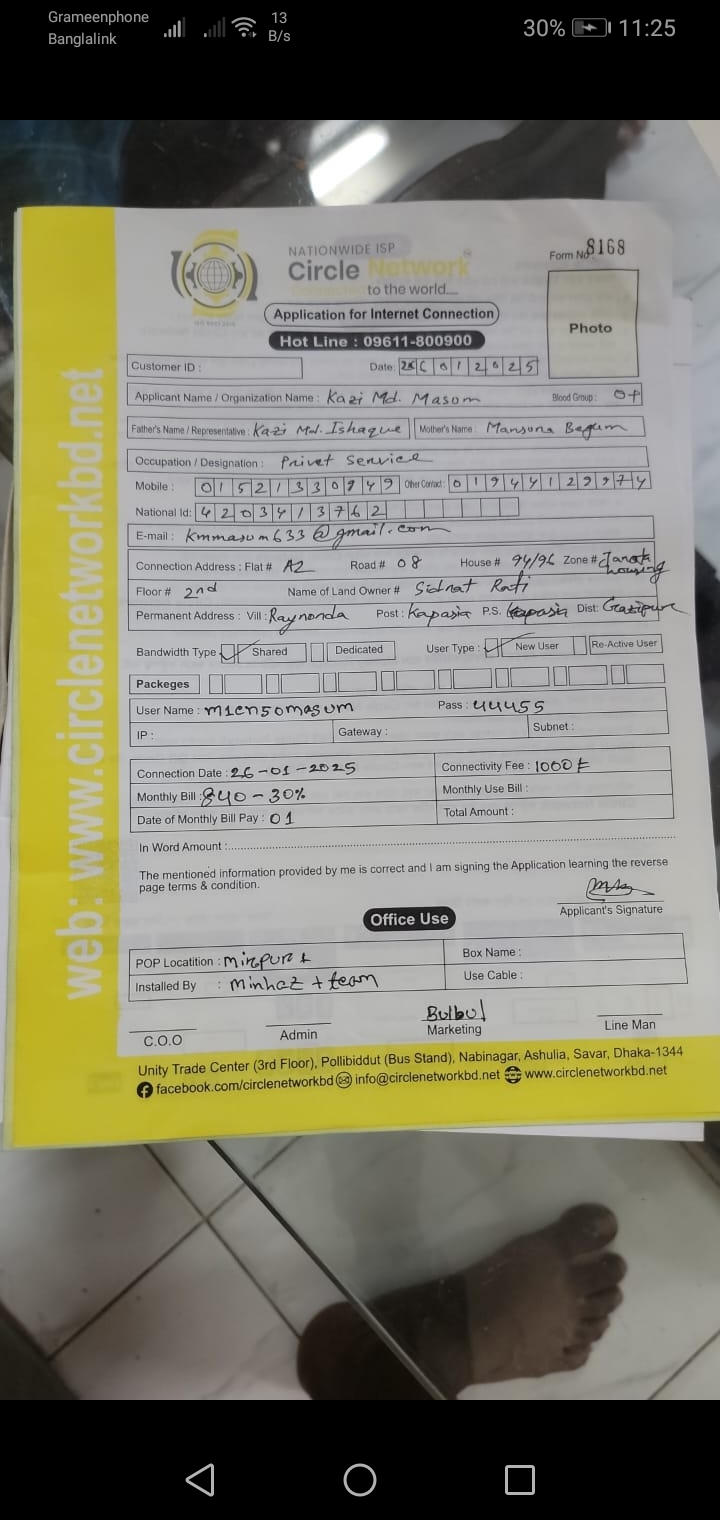 Grameenphone
Banglalink
13
B/s
30%
11:25
web: www.circlenetworkbd.net
NATIONWIDE ISP
Circle Network
to the world....
Form No 8168
Application for Internet Connection
Photo
Hot Line : 09611-800900
Customer ID :
Date: 26 01 2025
Applicant Name / Organization Name : Kazi Md. Masom Blood Group : O+
Father's Name / Representative : Kazi Md. Ishaque Mother's Name : Mansura Begum
Occupation / Designation : Privet Service
Mobile : 01521330949 Other Contact :
National Id: 4203413762
E-mail : kmmasum633@gmail.com
Connection Address : Flat # A2 Road # 08 House # 94/96 Zone # Janata housing
Floor # 2nd Name of Land Owner #
Permanent Address : Vill : Raynonda Post : Kapasia P.S. Kapasia Dist: Gazipur
Bandwidth Type Shared Dedicated User Type : New User Re-Active User
Packeges
User Name : m1cn50masum Pass : 44455
IP : Gateway : Subnet :
Connection Date : 26-01-2025 Connectivity Fee : 1000৳
Monthly Bill : 840-30% Monthly Use Bill :
Date of Monthly Bill Pay : 01 Total Amount :
In Word Amount :
The mentioned information provided by me is correct and I am signing the Application learning the reverse
page terms & condition.
Applicant's Signature
Office Use
POP Locatition : Mirpur 1 Box Name :
Installed By : Minhaz + team Use Cable :
Bulbul
C.O.O Admin Marketing Line Man
Unity Trade Center (3rd Floor), Pollibiddut (Bus Stand), Nabinagar, Ashulia, Savar, Dhaka-1344
facebook.com/circlenetworkbd info@circlenetworkbd.net www.circlenetworkbd.net